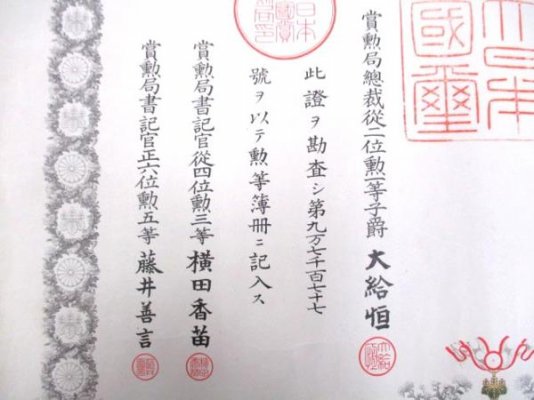 大日本
國璽
賞勲局總裁從二位勲一等子爵 大給恒
此證ヲ勘査シ第九万七千百七十七
號ヲ以テ勲等簿册ニ記入ス
賞勲局書記官從四位勲三等 横田香苗
賞勲局書記官正六位勲五等 藤井善言